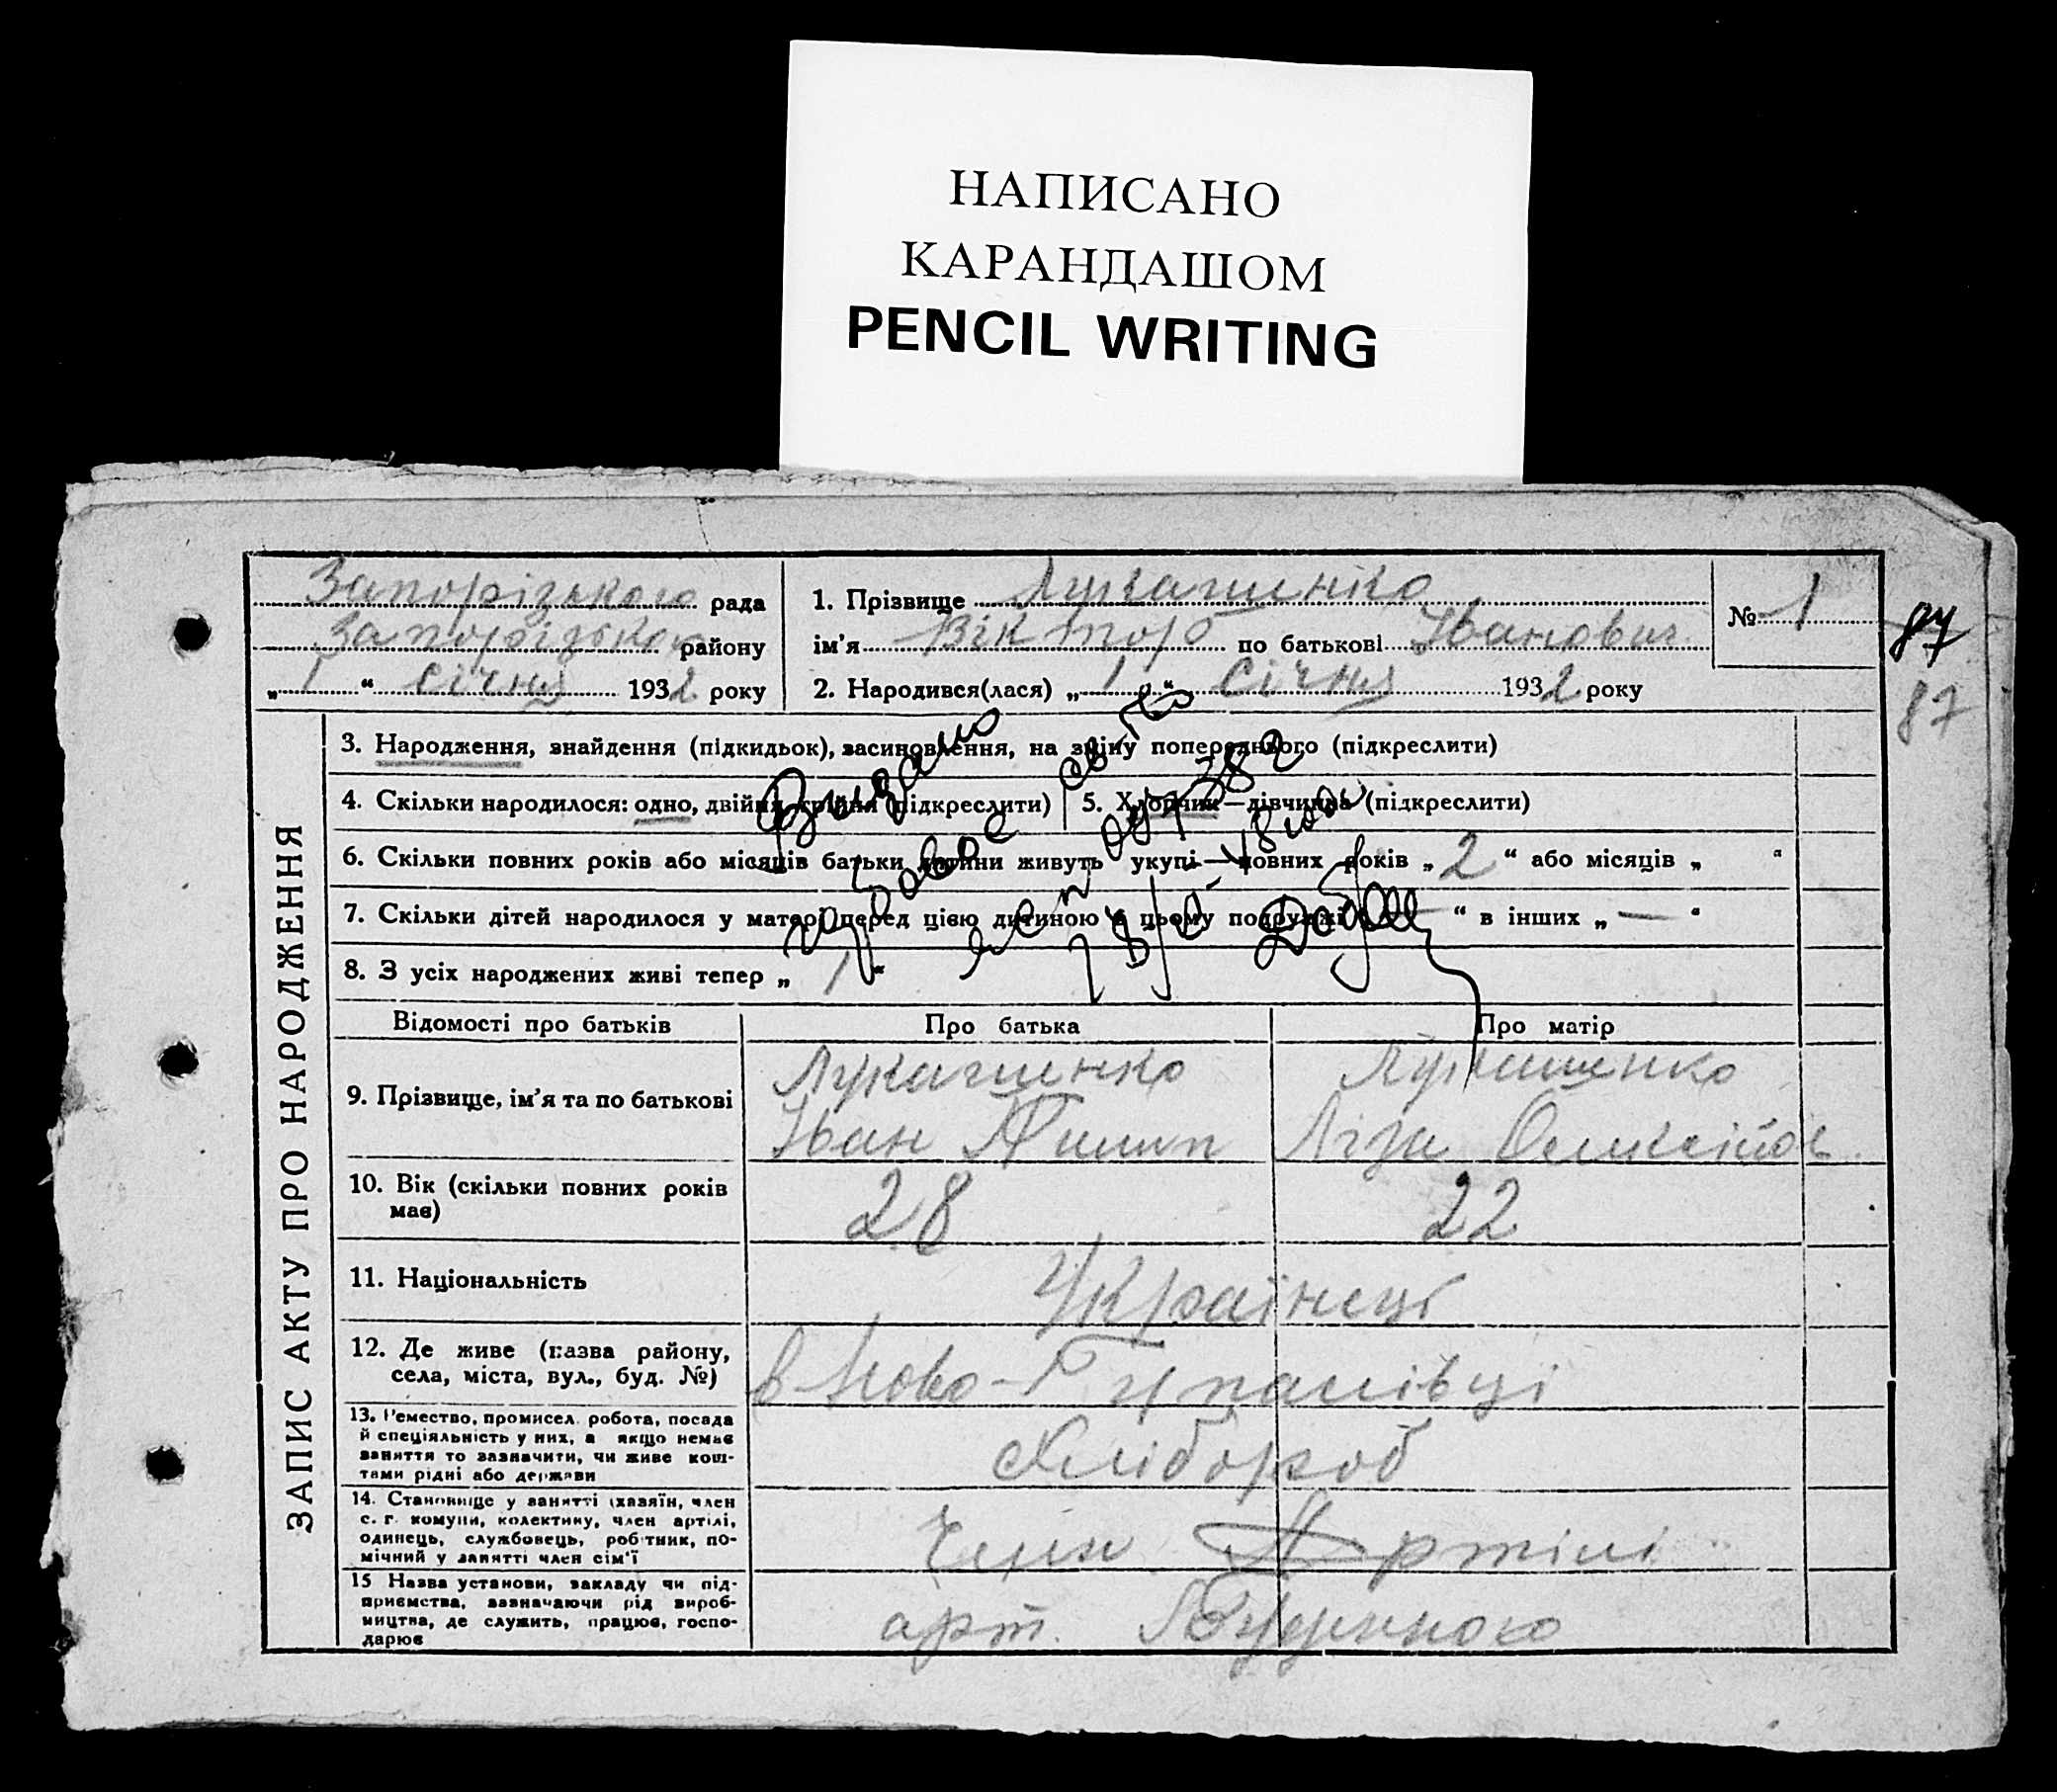 НАПИСАНО
КАРАНДАШОМ
PENCIL WRITING
Запорізького рада
Запорізького району
„ 1 “ січня 1932 року
1. Прізвище Лукашенко
ім’я Віктор по батькові Іванович
2. Народився(лася) „ 1 “ Січня 1932 року
№ 1
87
87
ЗАПИС АКТУ ПРО НАРОДЖЕННЯ
3. Народження, знайдення (підкидьок), засиновлення, на зміну попереднього (підкреслити)
4. Скільки народилося: одно, двійня, трійня (підкреслити)
5. Хлопчик—дівчинка (підкреслити)
6. Скільки повних років або місяців батьки дитини живуть укупі—повних років „ 2 “ або місяців „ “
7. Скільки дітей народилося у матері перед цією дитиною в цьому подружжі — “ в інших „ — “
8. З усіх народжених живі тепер „ 1 “
Видано
Відомості про батьків
Про батька
Про матір
9. Прізвище, ім’я та по батькові
Лукашенко
Іван Пилип
Лукашенко
Ліза
10. Вік (скільки повних років має)
28
22
11. Національність
Українці
12. Де живе (назва району, села, міста, вул., буд. №)
в Ново-Гупалівці
13. Ремество, промисел. робота, посада й спеціяльність у них, а якщо немає заняття то зазначити, чи живе коштами рідні або держави
Хлібороб
14. Становище у занятті (хазяїн, член с. г. комуни, колективу, член артілі, одинець, службовець, робітник, помічний у занятті член сім’ї
Член Артілі
15 Назва установи, закладу чи підприємства, зазначаючи рід виробництва, де служить, працює, господарює
арт. Будьоного